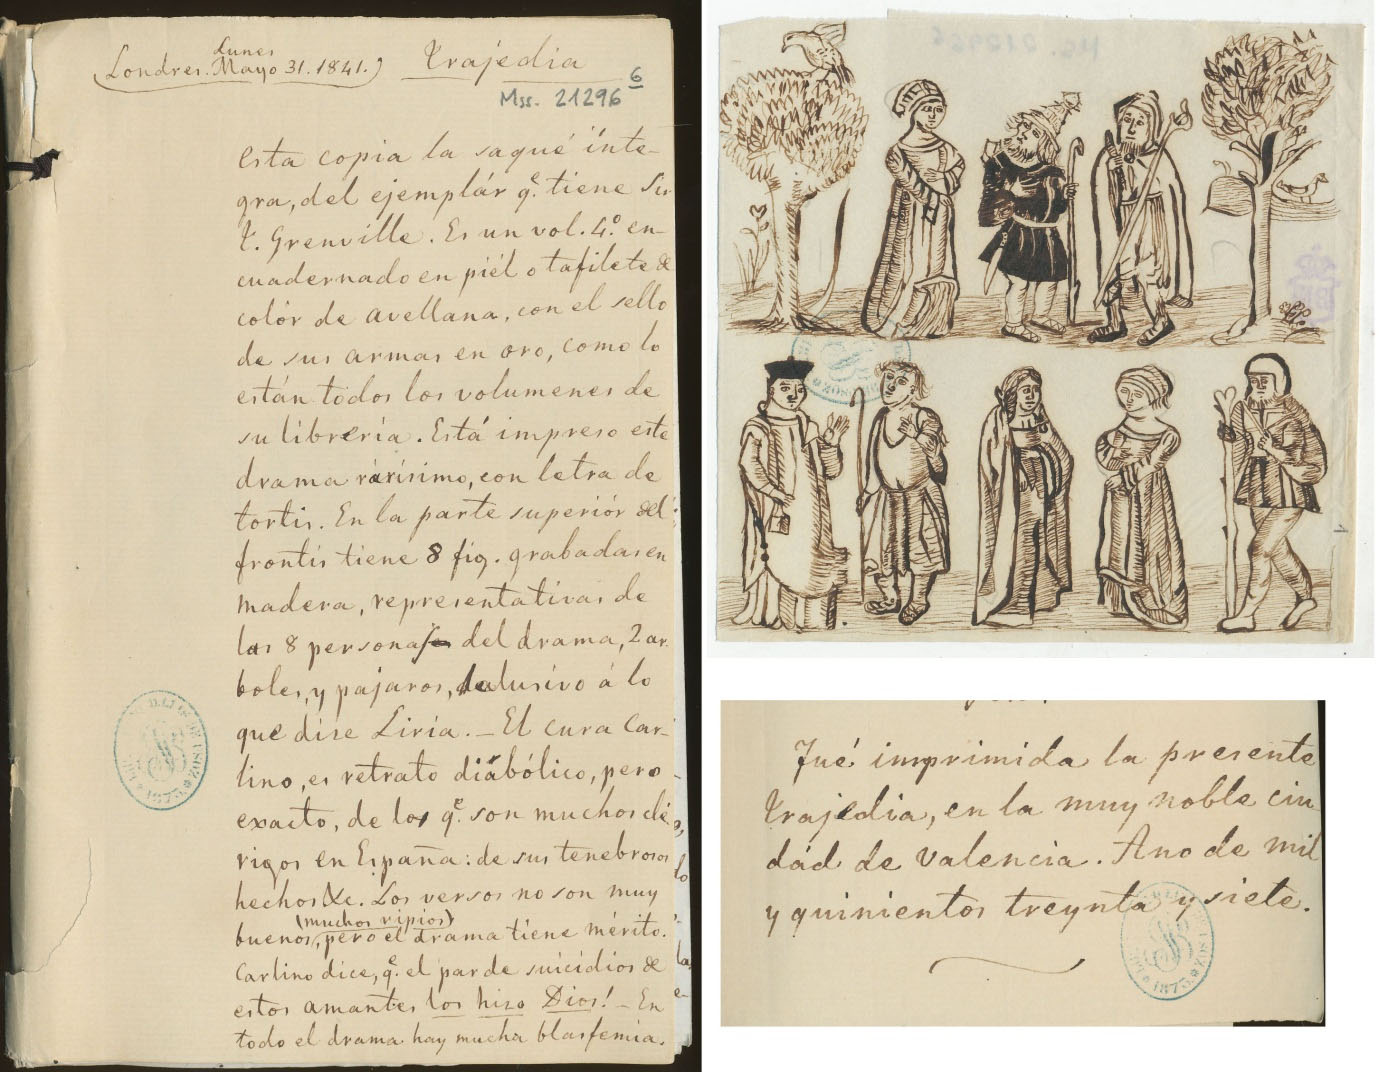 (Londres. Lunes Mayo 31. 1841.) Trajedia
6
Mss. 21296
esta copia la saqué ínte-
gra, del ejemplár qe. tiene Sir
T. Grenville. Es un vol. 4.º en-
cuadernado en piél o tafilete de
colór de avellana, con el sello
de sus armas en oro, como lo
están tódos los volumenes de
su librería. Está impreso este
drama rárísimo, con letra de
tortis. En la parte superiór del
frontis tiene 8 fig. grabadas en
madera, representativas de
las 8 personas del drama, 2 ar-
boles, y pajaros, alusivo á lo
que dise Liria. — El cura Car-
lino, es retrato diábólico, pero
exacto, de los qe. son muchos clé-
rigos en España: de sus tenebrosos
hechos &c. Los versos no son muy
(muchos ripios)
buenos, pero el drama tiene mérito.
Carlino dice, qe. el par de suicidios de
estos amantes los hizo Dios! — En
todo el drama hay mucha blasfemia.
1
Fué imprimida la presente
trajedia, en la muy noble ciu-
dád de Valencia. Ano de mil
y quinientos treynta y siete.
1873